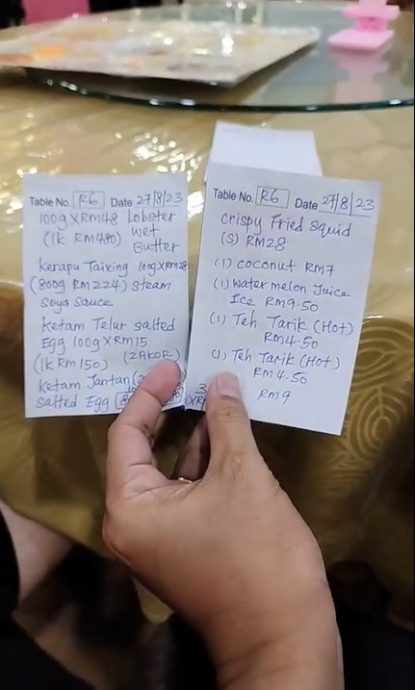 Table No. R6 Date 27/8/23
100g X RM48 Lobster
(1k RM480) wet
Butter
kerapu Taixing 100g X RM28
(800g RM224) Steam
Soya Sauce
Ketam Telur salted
Egg 100g X RM15
(1k RM150) (2 EKOR)
Ketam Jantan
salted Egg
Table No. R6 Date 27/8/23
Crispy Fried Squid
(S) RM28
(1) coconut RM7
(1) water melon Juice
Ice RM9-50
(1) Teh Tarik (Hot)
RM4-50
(1) Teh Tarik (Hot)
RM4-50
RM9